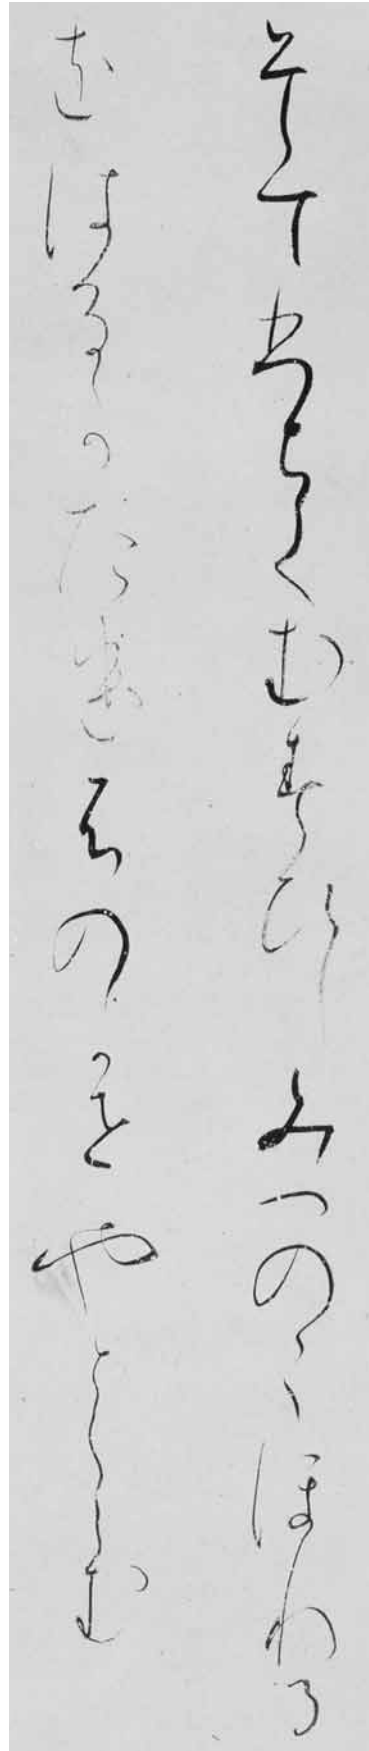 そてひちてむすひしみつのこほれる
をはるかたけふのかせやとくらむ